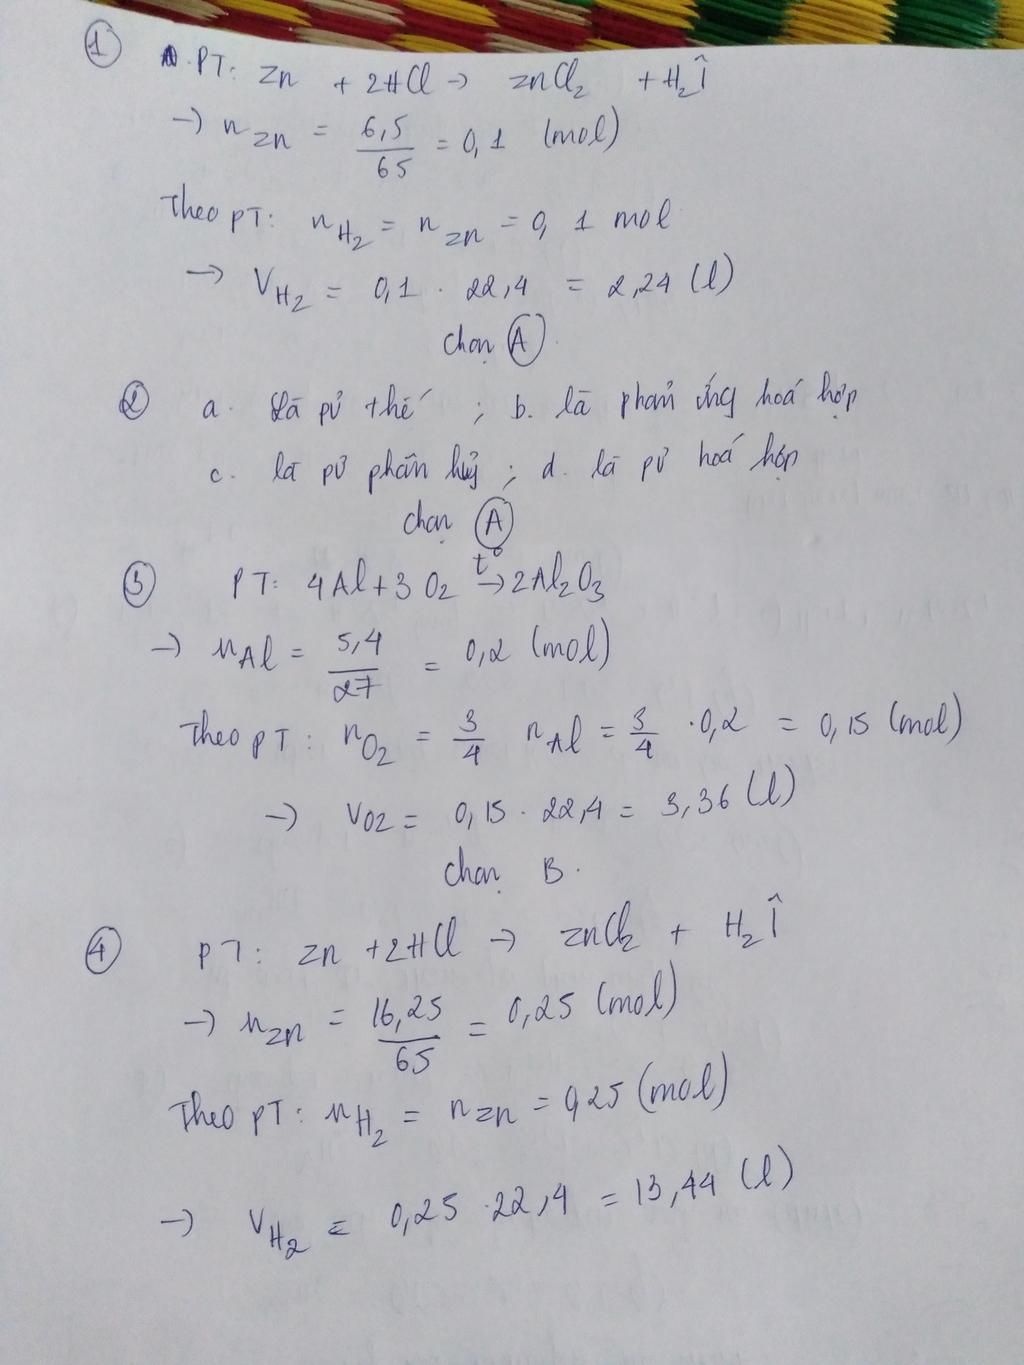 ① PT: Zn + 2HCl → ZnCl₂ + H₂↑
→ n Zn = 6,5/65 = 0,1 (mol)
Theo PT: n H₂ = n Zn = 0,1 mol
→ V H₂ = 0,1 . 22,4 = 2,24 (l)
Chọn Ⓐ.
② a. Là pư thế ; b. là phản ứng hoá hợp
c. là pư phân huỷ ; d. là pư hoá hợp
chọn Ⓐ
③ PT: 4Al + 3O₂ t°→ 2Al₂O₃
→ n Al = 5,4/27 = 0,2 (mol)
Theo PT: n O₂ = 3/4 n Al = 3/4 . 0,2 = 0,15 (mol)
→ V O2 = 0,15 . 22,4 = 3,36 (l)
Chọn B.
④ PT: Zn + 2HCl → ZnCl₂ + H₂↑
→ n Zn = 16,25/65 = 0,25 (mol)
Theo PT: n H₂ = n Zn = 0,25 (mol)
→ V H₂ = 0,25 . 22,4 = 13,44 (l)